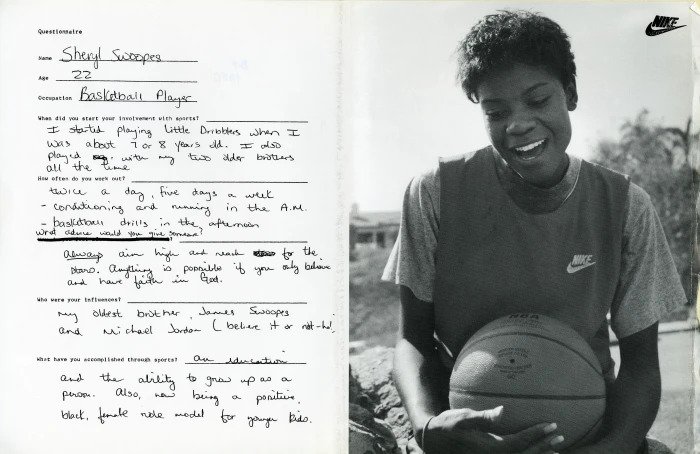 Questionnaire
Name Sheryl Swoopes
Age 22
Occupation Basketball Player
When did you start your involvement with sports?
I started playing Little Dribblers when I
was about 7 or 8 years old. I also
played with my two older brothers
all the time
How often do you work out?
twice a day, five days a week
- conditioning and running in the A.M.
- basketball drills in the afternoon
What advice would you give someone?
always aim high and reach for the
stars. Anything is possible if you only believe
and have faith in God.
Who were your influences?
my oldest brother, James Swoopes
and Michael Jordan (believe it or not-ha)
What have you accomplished through sports? an education
and the ability to grow up as a
person. Also, now being a positive,
black, female role model for younger kids.
NIKE
NIKE
NBA